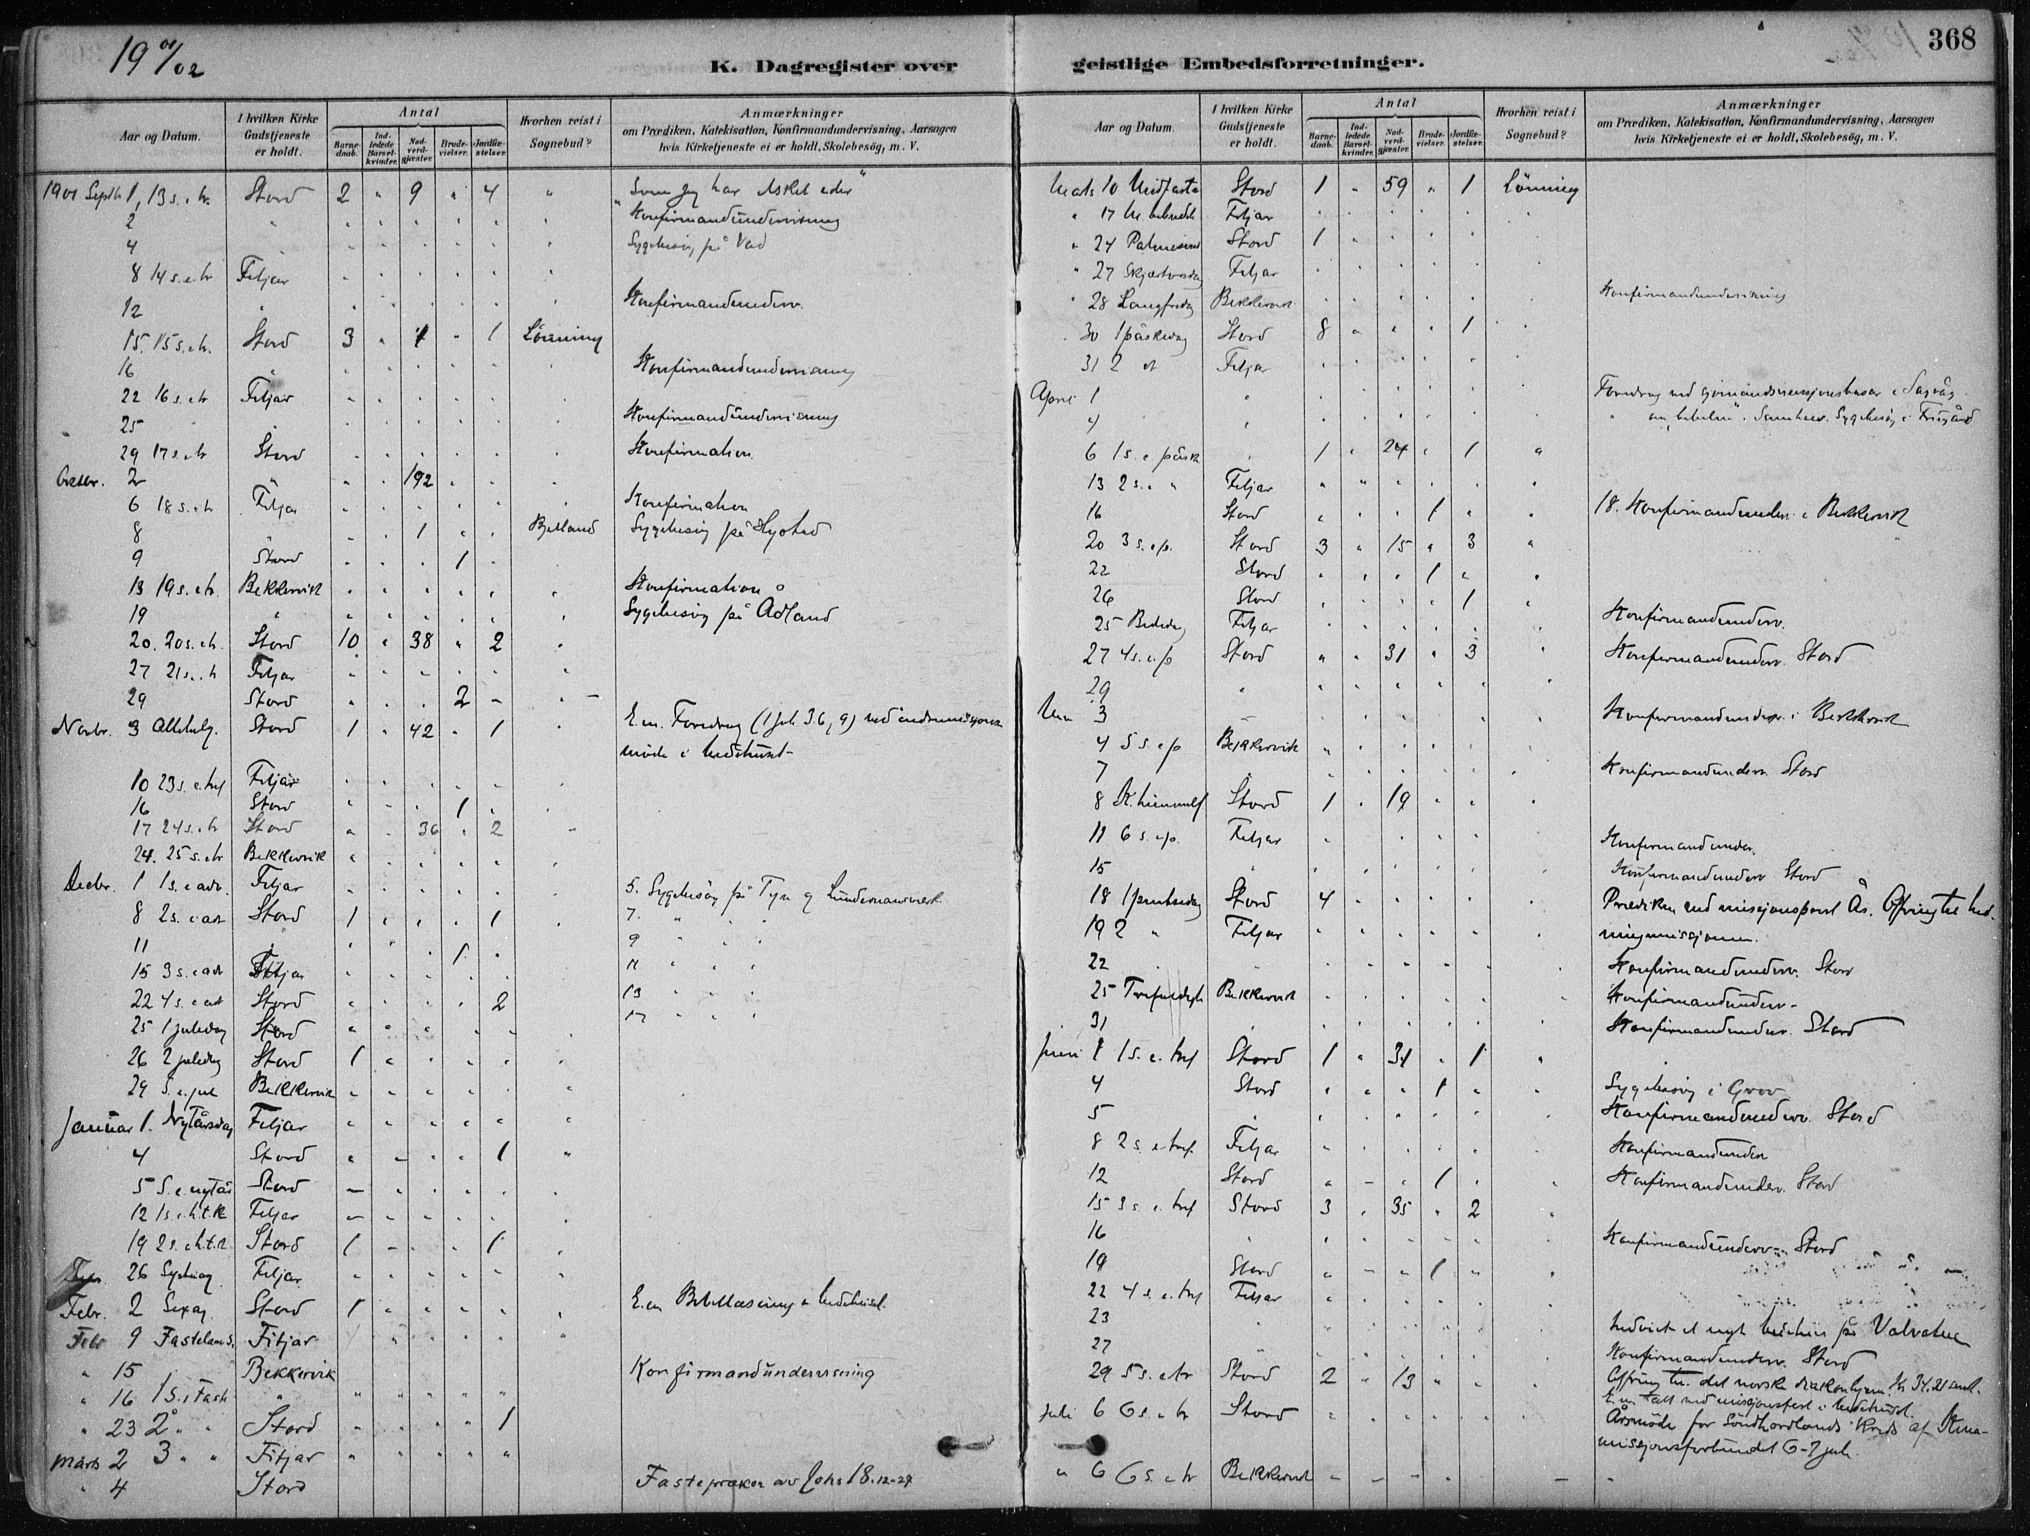 19 01/02
368
K. Dagregister over geistlige Embedsforretninger.
Aar og Datum.
I hvilken Kirke Gudstjeneste er holdt.
Antal
Barne-daab.
Ind-ledede Barsel-kvinder.
Nad-verd-gjæster.
Brude-vielser.
Jordfæ-stelser.
Hvorhen reist i Sognebud?
Anmærkninger
om Prædiken, Katekisation, Konfirmandundervisning, Aarsagen
hvis Kirketjeneste ei er holdt, Skolebesög, m. V.
1901 Septbr 1, 13 s. e. tr. Stord 2 " 9 " 4 " "Som jeg har elsket eder"
2 " Konfirmandundervisning
4 Sygebesög på Vad
8 14 s. e. tr Fitjar
12 Konfirmandunderv.
15. 15 s. e. tr. Stord 3 " 1 " 1 Lönning
16 Konfirmandundervisning
22 16 s. e. tr Fitjar
25 Konfirmandundervisning
29 17 s. e. tr Stord Konfirmation.
Octbr. 2 " 192
6 18 s. e. tr Fitjar Konfirmation
8 1 Sygebesög på
9 Stord 1
13 19 s. e. tr Bekkervik Konfirmation
19 Sygebesög på Ådland
20. 20 s. e. tr. Stord 10 " 38 " 2
27 21 s. e. tr Fitjar
29 Stord 2
Novbr. 3 Allehelg. Stord 1 " 42 " 1 E.m. Foredrag (1 Joh. 3.6, 9) ved indremissjons
möde i bedehuset
10 23 s. e. tref Fitjar
16 Stord 1
17 24 s. e. tr Stord 36 " 2
24. 25 s. e. tr Bekkervik
Decbr. 1 1 s. e adv. Fitjar 5. Sygebesög på Tyse og
8 2 s. i adv Stord 1 1 7. " " "
9 " " "
11 1 11 " " "
15 3 s. e adv Fitjar
22 4 s. e adv Stord 2 13 " " "
25 1 juledag Stord 17 " " "
26 2 juledag Stord 1
29 S. e. jul Bekkervik
Januar 1. Nytårsdag Fitjar
4 Stord 1
5 S. e. nytår Stord
12 1 s. e. h. t. k Fitjar
19 2 s. e. h. t. k. Stord 1 1
26 Fitjar
Febr. 2 Sexag. Stord 1 E.m Bibellæsning i bedehuset.
Febr 9 Fastelavns. Fitjar
" 15 Bekkervik Konfirmandundervisning
" 16 1 S. i Fast " " " " " "
" 23 2 " " Stord " 1
Marts 2 3 " " Fitjar
" 4 Stord Fastepræken over Johs 18. 12-27
Aar og Datum.
I hvilken Kirke Gudstjeneste er holdt.
Antal
Barne-daab.
Ind-ledede Barsel-kvinder.
Nad-verd-gjæster.
Brude-vielser.
Jordfæ-stelser.
Hvorhen reist i Sognebud?
Anmærkninger
om Prædiken, Katekisation, Konfirmandundervisning, Aarsagen
hvis Kirketjeneste ei er holdt, Skolebesög, m. V.
Marts 10 Midfaste Stord 1 " 59 " 1 Lönning
" 17 M. bebudels Fitjar
" 24 Palmesönd Stord 1
" 27 Skjærtorsdag Fitjar
" 28 Langfredag Bekkervik Konfirmandundervisning
30 1 påskedag Stord 8 1
31 2 " Fitjar
April 1
4 Sygebesög i
6 1 s. e. påsk 1 " 24 " 1
13 2 s. " " Fitjar
16 Stord 1 18. Konfirmandunderv. i Bekkervik
20 3 s. e. p. Stord 3 " 15 " 3
22 Stord 1
26 Stord 1
25 Bededag Fitjar Konfirmandunderv.
27 4 s. e. p Stord 31 " 3 Konfirmandunderv. Stord
29
Mai 3 Konfirmandunderv. i Bekkervik
4 5 s. e p Bekkervik
7 Konfirmandunderv. Stord
8 K. himmelf Stord 1 " 19
11 6 s. e p. Fitjar Konfirmandunder.
15 Konfirmandunderv Stord
18 1 pintsedag Stord 4 Prædiken ved Ås. Ofring til hed-
19 2 " Fitjar ningmissjonen.
22 Konfirmandunderv. Stord
25 Trefoldigh Bekkervik Konfirmandunderv.
31 Konfirmandunderv. Stord
Juni 1 1 s. e. tref Stord 1 " 31 " 1
4 Stord 1 Sygebesög i Grov
5 Konfirmandunderv. Stord
8 2 s. e tref. Fitjar Konfirmandunder
12 Stord 1 Konfirmandunderv. Stord
15 3 s. e. tref Stord 3 " 35 " 2
16 Konfirmandunderv. Stord
19 Stord 1
22 4 s. e. tref Fitjar
23 Indviet et nyt bedehus på Valvatne
27 Konfirmandunderv. Stord
29 5 s. e tr Stord 2 " 13 Offring til det norske diakonhjem. Kr 34.21
E.m talt ved missjonsfest i bedehuset.
Juli 6 6 s. e tr Stord Årsmöde for Söndhordlands Kreds af Kina-
missjonsforbundet 6-7 juli.
" 6 6 s. e tr Bekkervik